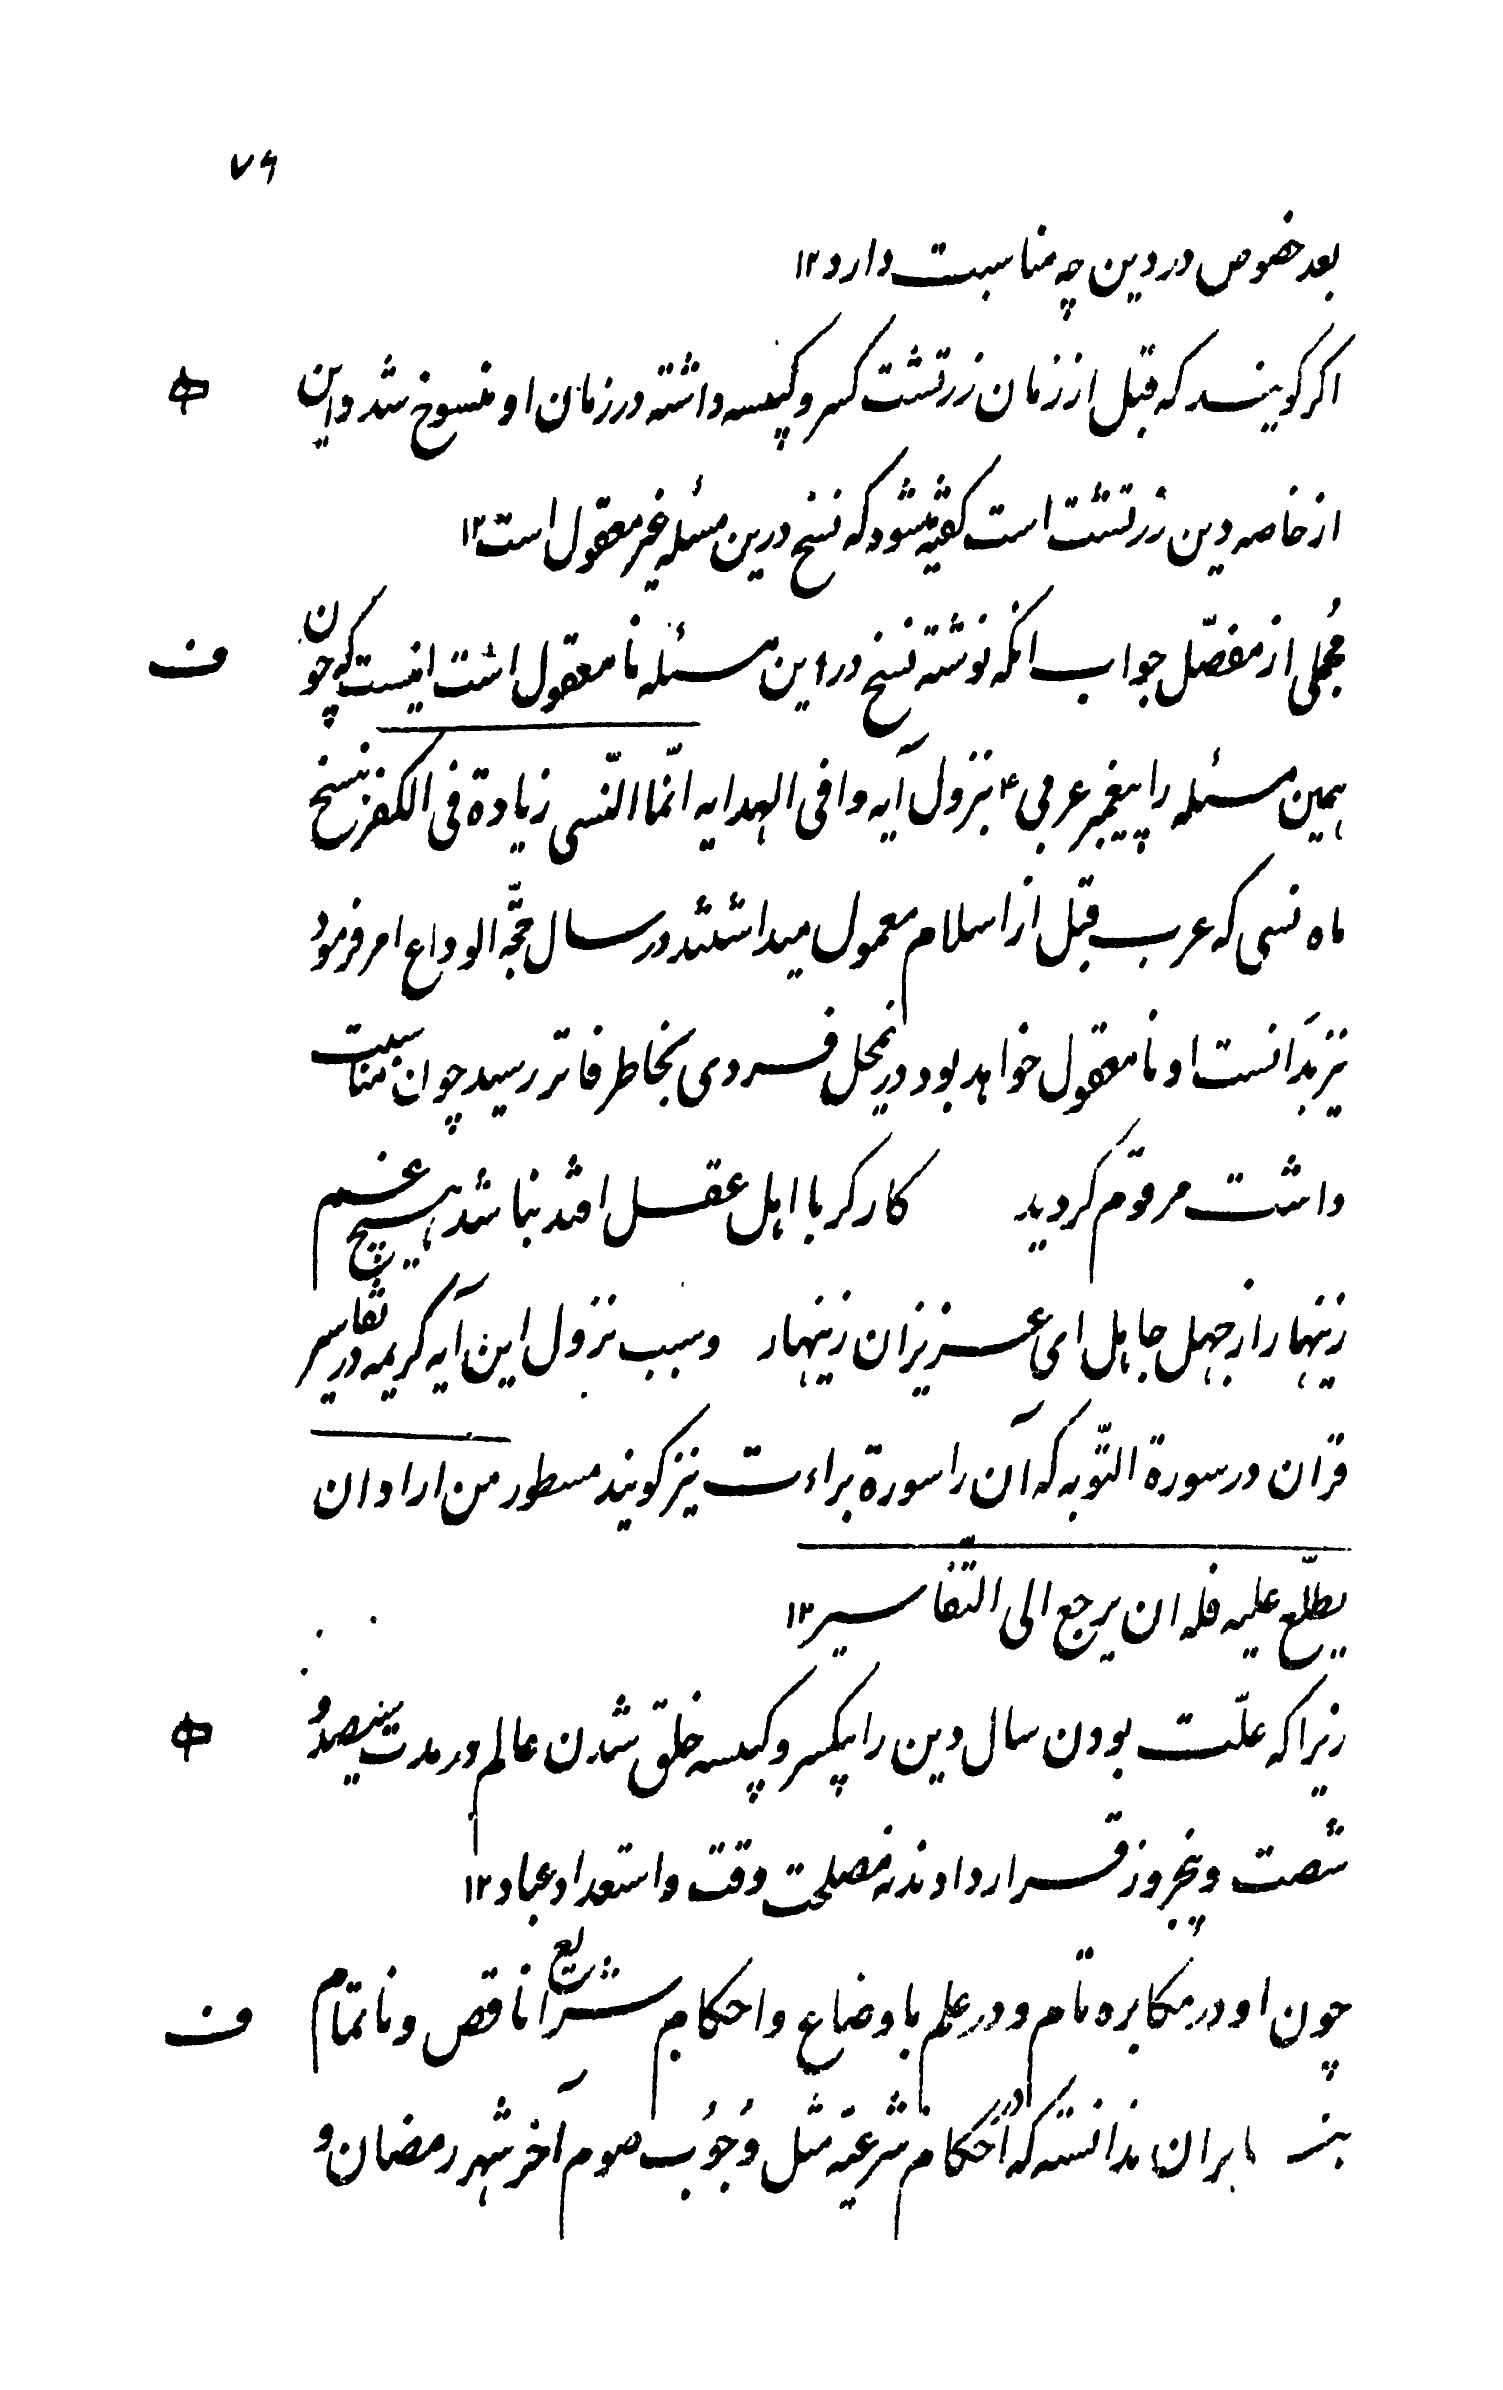 ۷۶
بعد خصوص در دین چه مناسبت دارد ۱۲
اکر کویند که قبل از زمان زرتشت کسر و کپیسه داشته در زمان او منسوخ شد و این
از خاصه دین زرتشت است کفته میشود که نسخ درین مسئله غیر معقول است ۱۲
مجُملی از مفصّل جواب انکه نوشته نسخ در این مسئله نامعقول است اینست که چون
ف
همین مسئله را پیغمبر عربی ۴ بنزول آیه وافی الهدایه انّما النّسی زیادة فی الکفر نسخ
ماه نسی که عرب قبل از اسلام معمول میداشتند در سال حجّه الوداع امر فرمود
نیز بَدانست او نامعقول خواهد بود درینمحل فردی بخاطر فاتر رسید چون مناسبت
داشت مرقوم کردید کار کر با اهل عقل افتد نباشد هیچ غم
زینهار از جهل جاهل ای عزیزان زینهار وسبب نزول این آیه کریمه در تفاسیر
قرآن در سورة التّوبه که آن را سورة براءت نیز کویند مسطور من اراد ان
یطّلع علیه فله ان یرجع الی التّفاسیر ۱۲
زیرا که علّت بودن سال دین را پیکسر و کپیسه خلق شدن عالم در مدت سیصد و
شصت و پنجروز قرار دادند نه مصلحت وقت و استعداد عباد ۱۲
چون او در مکابره تام و در علم باوضاع و احکام شرایع ناقص و ناتمام
ف
بنابران ندانسته که در احکام شرعیّه مثل وُجوُب صوم آخر شهر رمضان و